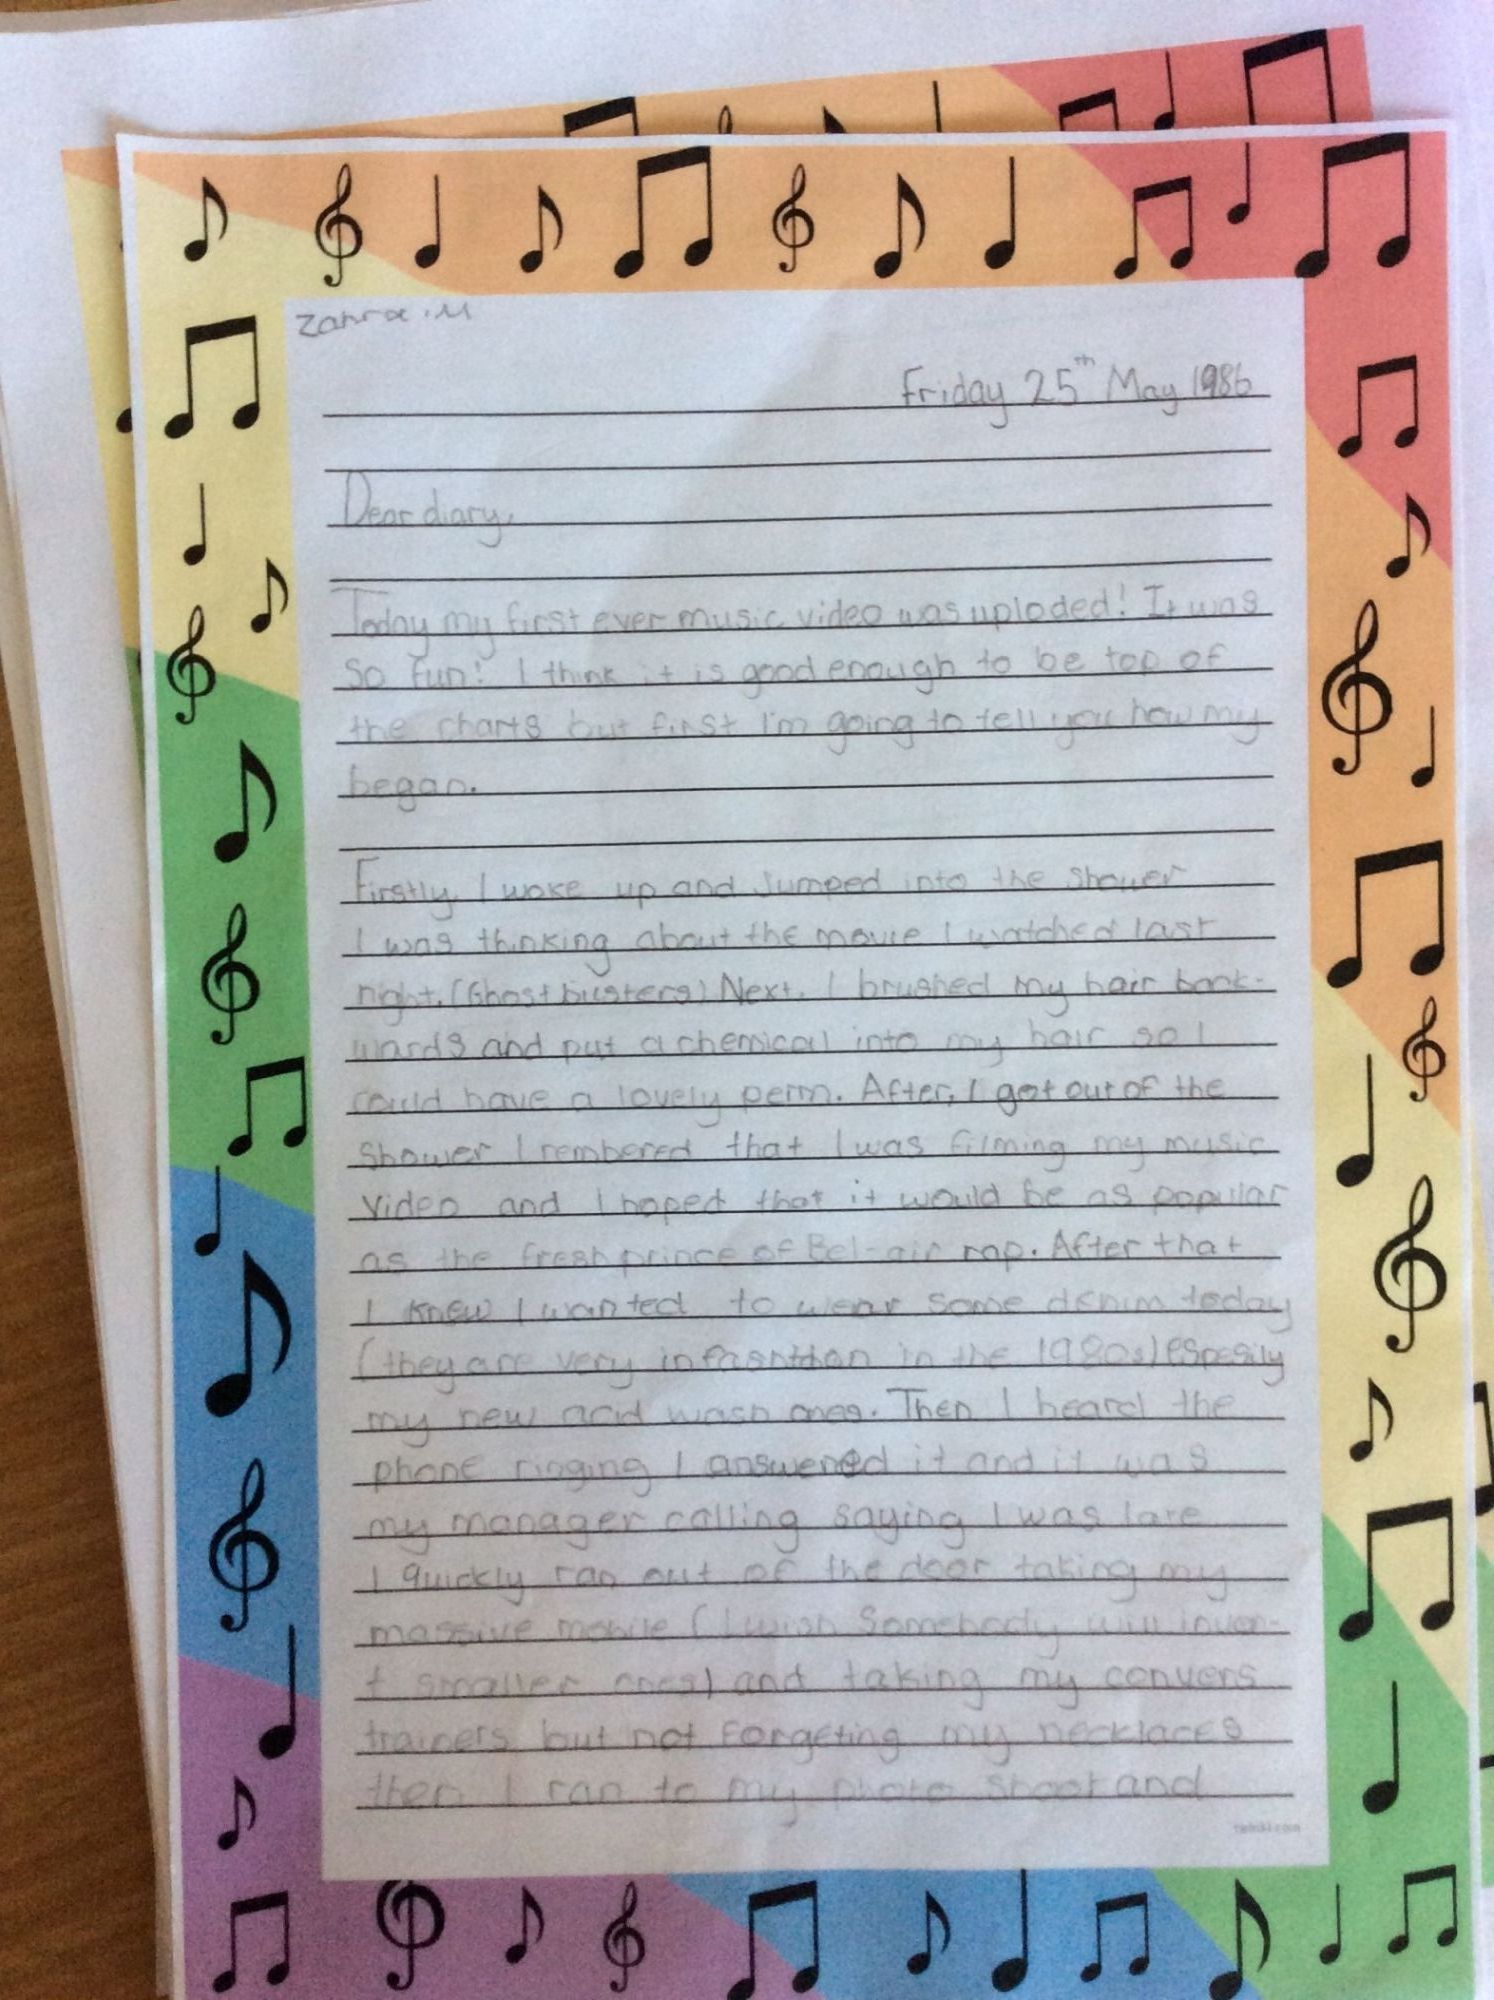 Zahra .M
Friday 25th May 1986
Dear diary,
Today my first ever music video was uploded! It was
so fun! I think it is good enough to be top of
the charts but first I'm going to tell you how my
began.
Firstly, I woke up and Jumped into the shower
I was thinking about the movie I watched last
night. (Ghostbusters) Next, I brushed my hair back-
wards and put a chemical into my hair so I
could have a lovely perm. After, I got out of the
shower I rembered that I was filming my music
video and I hoped that it would be as popular
as the fresh prince of Bel-air rap. After that
I knew I wanted to wear some denim today
(they are very in fashtion in the 1980s) espesily
my new acid wash ones. Then I heard the
phone ringing I answered it and it was
my manager calling saying I was late
I quickly ran out of the door taking my
massive mobile (I wish somebody will inven-
t smaller ones) and taking my convers
trainers but not forgeting my necklaces
then I ran to my photo shoot and
twinkl.com